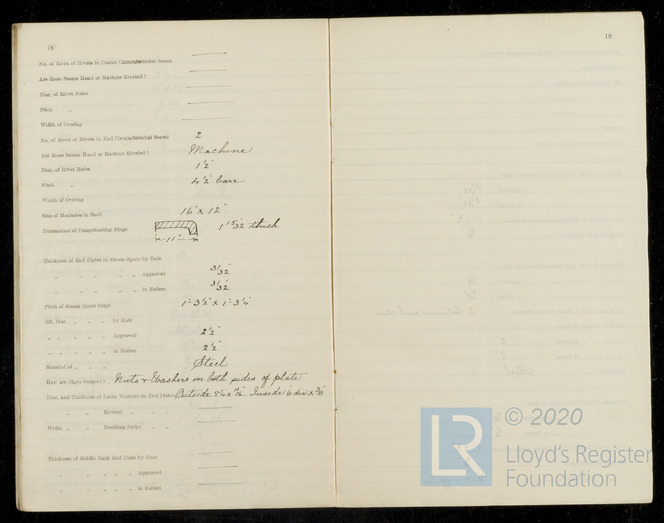 18
No. of Rows of Rivets in Centre Circumferential Seams
Are these Seams Hand or Machine Riveted?
Diar. of Rivet Holes
Pitch "
Width of Overlap
No. of Rows of Rivets in End Circumferential Seams 2
Are these Seams Hand or Machine Riveted? Machine
Diar. of Rivet Holes 1½"
Pitch " 4½" bare
Width of Overlap
Size of Manholes in Shell 16" x 12"
Dimensions of Compensating Rings 11" 1 15/32 thick
Thickness of End Plates in Steam Space by Rule
" " " " " Approved 31/32
" " " " " in Boilers 31/32
Pitch of Steam Space Stays 1'-3½" x 1'-3¼"
Eff. Diar. " " " by Rule
" " " " Approved 2½"
" " " " in Boilers 2½"
Material of " " " Steel
How are Stays Secured? Nuts & Washers on both sides of plate
Diar. and Thickness of Loose Washers on End Plates Outside Inside
" " Riveted " "
Width " " Doubling Strips "
Thickness of Middle Back End Plate by Rule
" " " " Approved
" " " " in Boilers
19
© 2020
LR
Lloyd's Register
Foundation